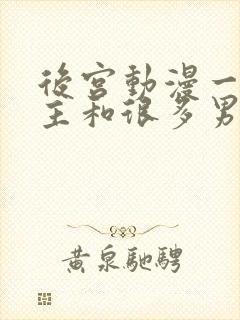 後宮動漫一
主和很多男
黃泉馳騁